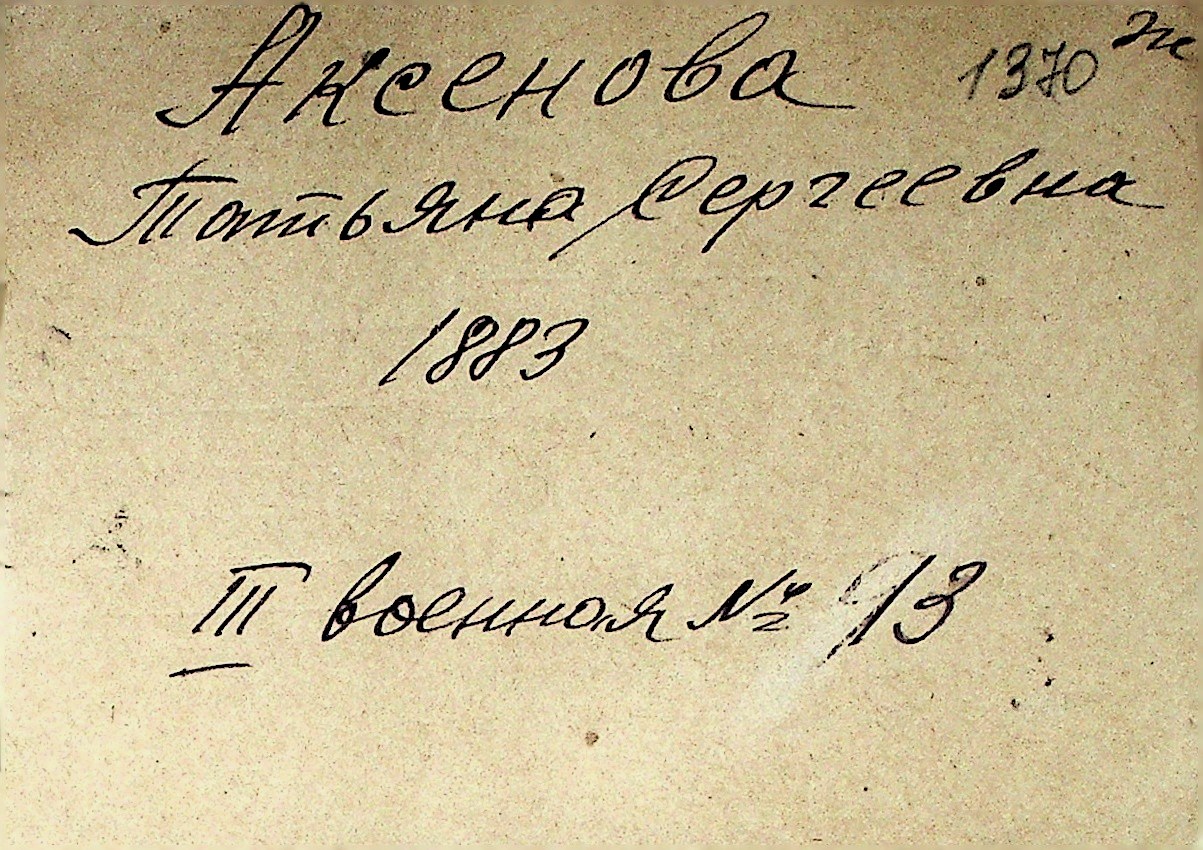 Аксенова 1370 ж
Татьяна Сергеевна
1883
III военная № 93